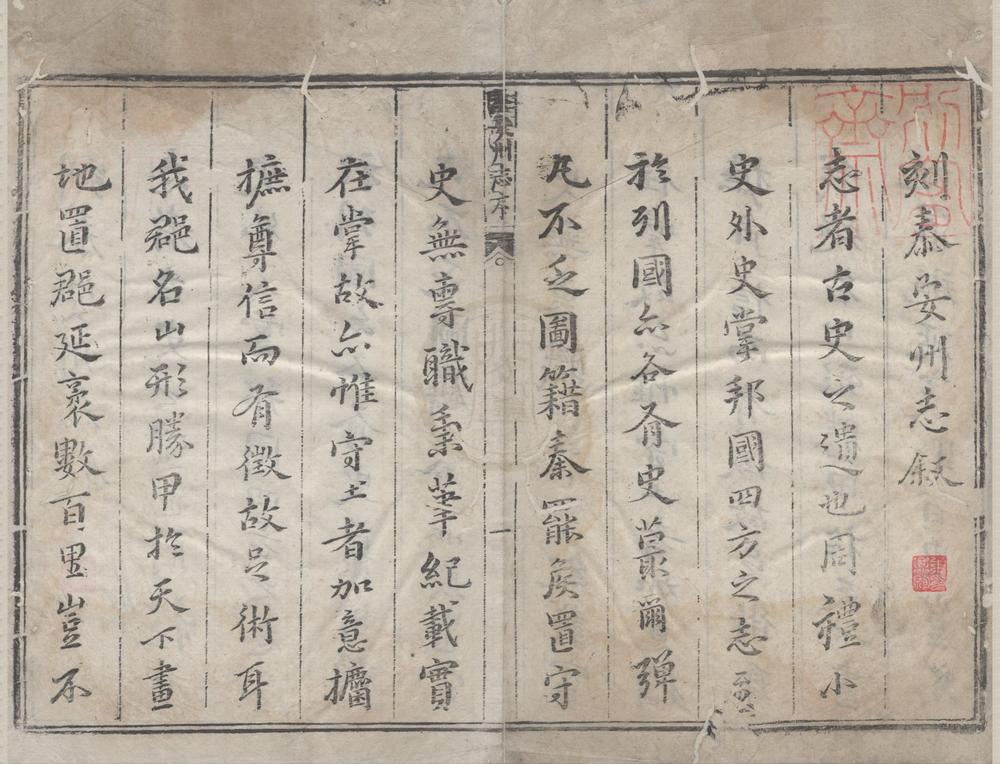 刻泰安州志敘
志者古史之遺也周禮小
史外史掌邦國四方之志至
於列國亦各有史蕞爾彈
丸不乏圖籍秦罷矦置守
泰安州志序
一
史無專職秉筆紀載實
在掌故亦惟守土者加意攟
摭尊信而有徵故足術耳
我郡名山形勝甲於天下畫
地置郡延袤數百里豈不